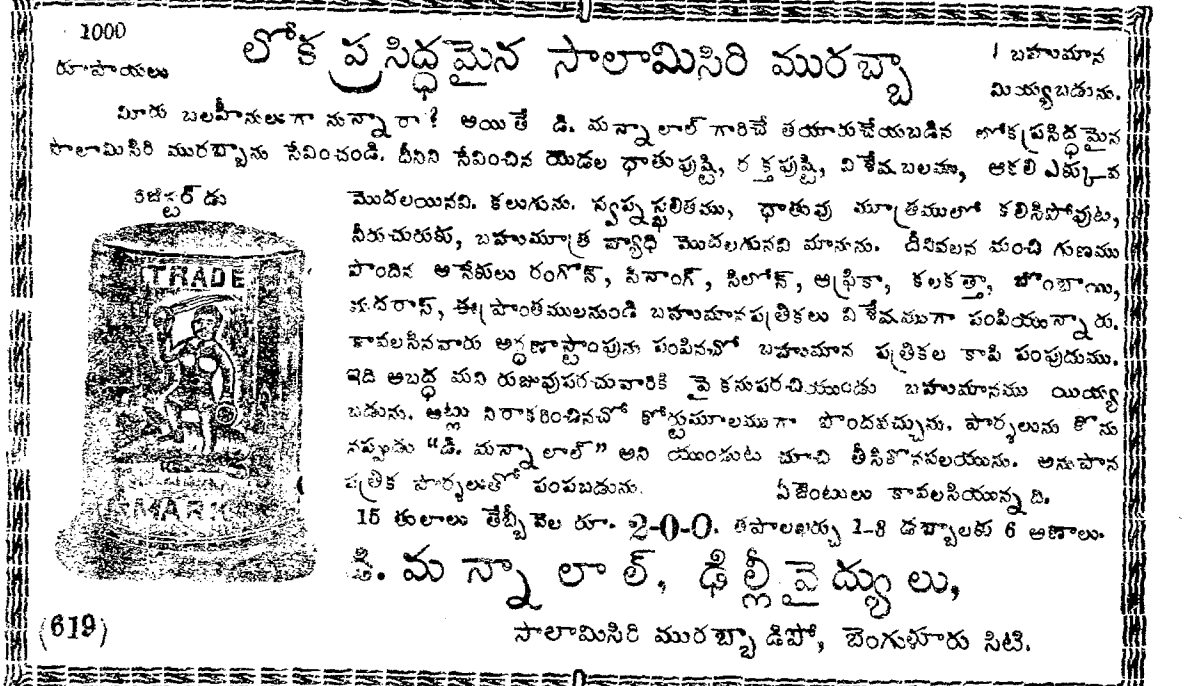 1000
రూపాయలు
లోక ప్రసిద్ధమైన సాలామిసిరి మురబ్బా
బహుమాన
మియ్యబడును.
మీరు బలహీనులుగా నున్నారా? అయితే డి. మన్నాలాల్ గారిచే తయారుచేయబడిన లోకప్రసిద్ధమైన
సాలామిసిరి మురబ్బాను సేవించండి. దీనిని సేవించిన యెడల ధాతుపుష్టి, రక్తపుష్టి, విశేషబలము, ఆకలి ఎక్కువ
రిజిస్టర్ డు
మొదలయినవి. కలుగును. స్వప్నస్ఖలితము, ధాతువు మూత్రములో కలిసిపోవుట,
నీరుచురుకు, బహుమూత్ర వ్యాధి మొదలగునవి మానును. దీనివలన మంచి గుణము
పొందిన అనేకులు రంగోన్, పీనాంగ్, సిలోన్, ఆఫ్రికా, కలకత్తా, బొంబాయి,
మదరాస్, ఈప్రాంతములనుండి బహుమానపత్రికలు విశేషముగా పంపియున్నారు.
కావలసినవారు అర్ధణాస్టాంపును పంపినచో బహుమాన పత్రికల కాపి పంపుదుము.
ఇది అబద్ధ మని రుజువుపరచువారికి పై కనుపరచియుండు బహుమానము యియ్య
బడును. అట్లు నిరాకరించినచో కోర్టుమూలముగా పొందవచ్చును. పార్శలును కొను
నప్పుడు "డి. మన్నాలాల్" అని యుండుట చూచి తీసికొనవలయును. అనుపాన
పత్రిక పార్శలుతో పంపబడును. ఏజెంటులు కావలసియున్నది.
15 తులాలు తేబ్బీ వెల రూ. 2-0-0. తపాలఖర్చు 1-8 డబ్బాలకు 6 అణాలు.
TRADE
MARK
డి. మన్నాలాల్, ఢిల్లీవైద్యులు,
(619)
సాలామిసిరి మురబ్బా డిపో, బెంగుళూరు సిటి.